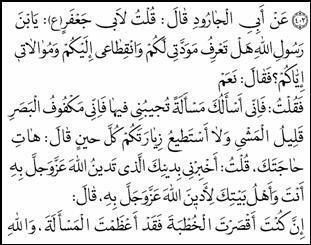 (٤٠٢) عَنْ أَبِي الْجَارُودِ قَالَ: قُلْتُ لأَبِي جَعْفَرٍ(ع): يَابْنَ
رَسُولِ اللهِ هَلْ تَعْرِفُ مَوَدَّتِي لَكُمْ وَانْقِطاعِي إِلَيْكُمْ وَمُوَالاَتِي
إِيَّاكُمْ؟ فَقَالَ: نَعَمْ
فَقُلْتُ: فَإِنِّي أَسْأَلُكَ مَسْأَلَةً تُجِيبُنِي فِيهَا فَإِنِّي مَكْفُوفُ الْبَصَرِ
قَلِيلُ الْمَشْيِ وَلاَ أَسْتَطِيعُ زِيَارَتَكُمْ كُلَّ حِينٍ قَالَ: هَاتِ
حَاجَتَكَ، قُلْتُ: أَخْبِرْنِي بِدِينِكَ الَّذِي تَدِينُ اللهَ عَزَّوَجَلَّ بِهِ
أَنْتَ وَأَهْلُ بَيْتِكَ لِأَدِينَ اللهَ عَزَّوَجَلَّ بِهِ، قَالَ:
إِنْ كُنْتَ أَقْصَرْتَ الْخُطْبَةَ فَقَدْ أَعْظَمْتَ الْمَسْأَلَةَ، وَاللهِ